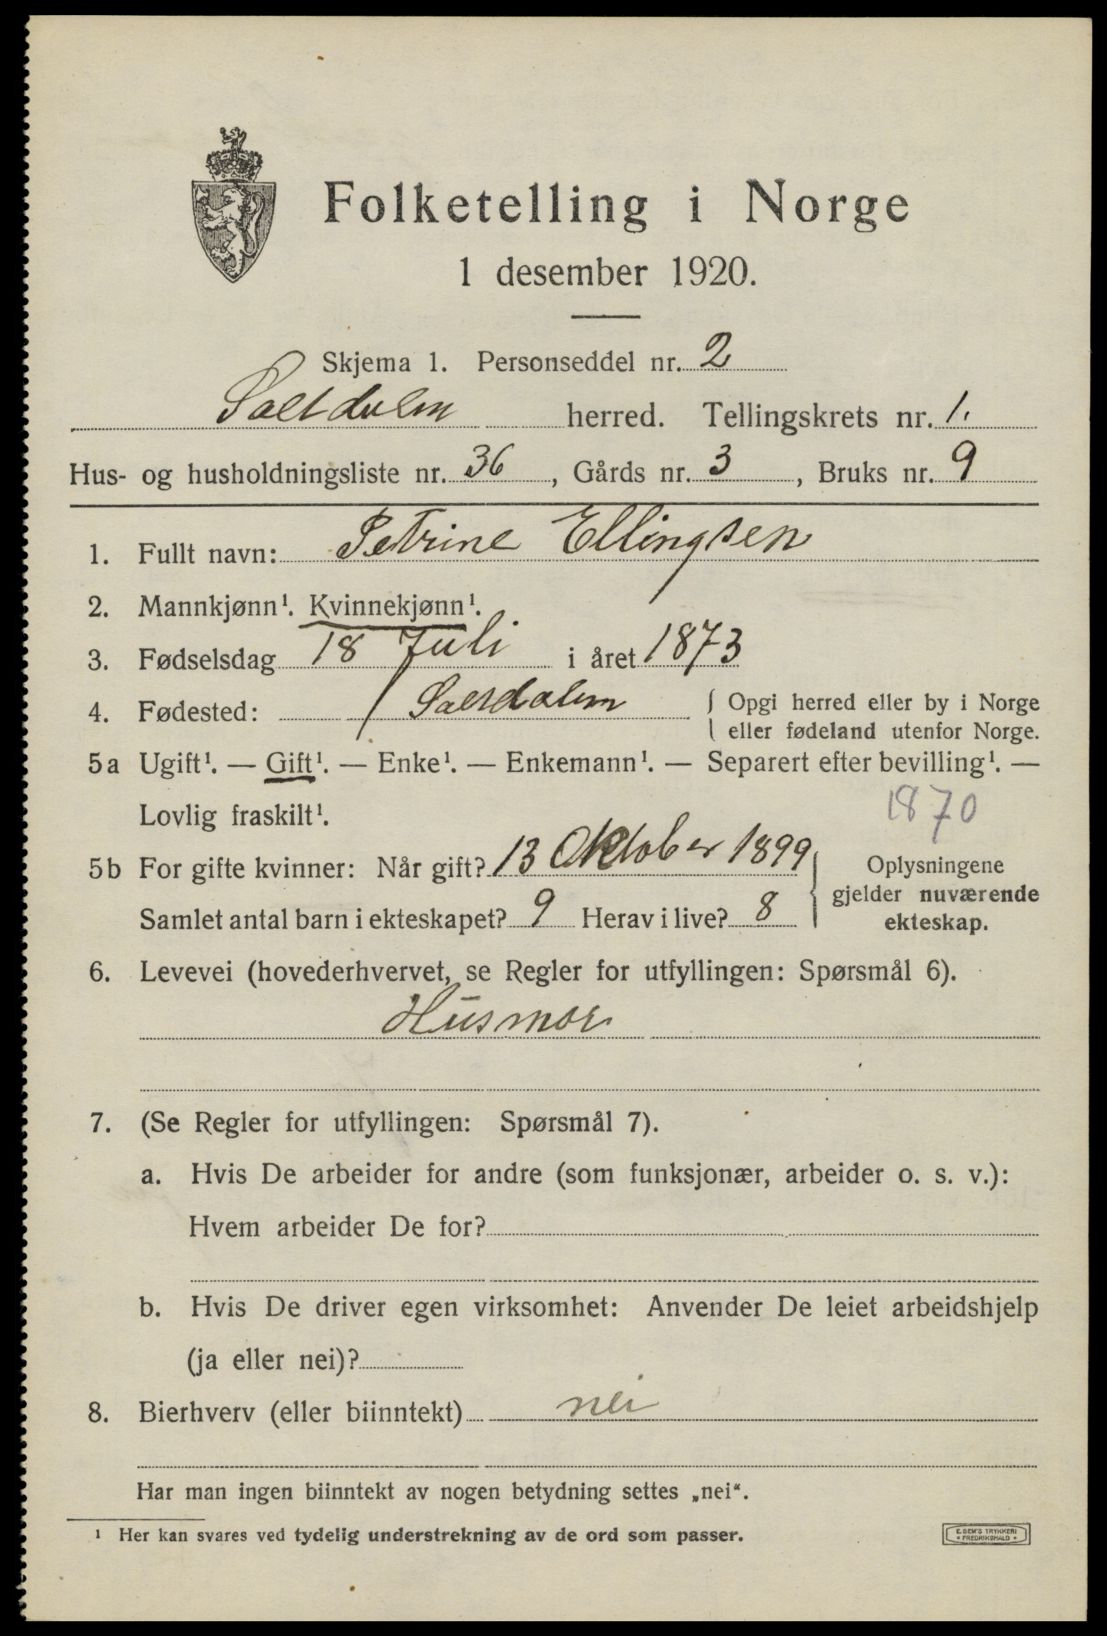 Folketelling i Norge
1 desember 1920.
Skjema 1. Personseddel nr. 2
Saltdalen herred. Tellingskrets nr. 1.
Hus- og husholdningsliste nr. 36, Gårds nr. 3, Bruks nr. 9
1. Fullt navn: Petrine Ellingsen
2. Mannkjønn¹. Kvinnekjønn¹.
3. Fødselsdag 18 Juli i året 1873
4. Fødested: Saltdalen { Opgi herred eller by i Norge
eller fødeland utenfor Norge.
5a Ugift¹. — Gift¹. — Enke¹. — Enkemann¹. — Separert efter bevilling¹. —
Lovlig fraskilt¹. 1870
5b For gifte kvinner: Når gift? 13 Oktober 1899 } Oplysningene
gjelder nuværende
Samlet antal barn i ekteskapet? 9 Herav i live? 8 ekteskap.
6. Levevei (hovederhvervet, se Regler for utfyllingen: Spørsmål 6).
Husmor
7. (Se Regler for utfyllingen: Spørsmål 7).
a. Hvis De arbeider for andre (som funksjonær, arbeider o. s. v.):
Hvem arbeider De for?
b. Hvis De driver egen virksomhet: Anvender De leiet arbeidshjelp
(ja eller nei)?
8. Bierhverv (eller biinntekt) nei
Har man ingen biinntekt av nogen betydning settes „nei“.
¹ Her kan svares ved tydelig understrekning av de ord som passer.
E. SEM'S TRYKKERI
FREDRIKSHALD